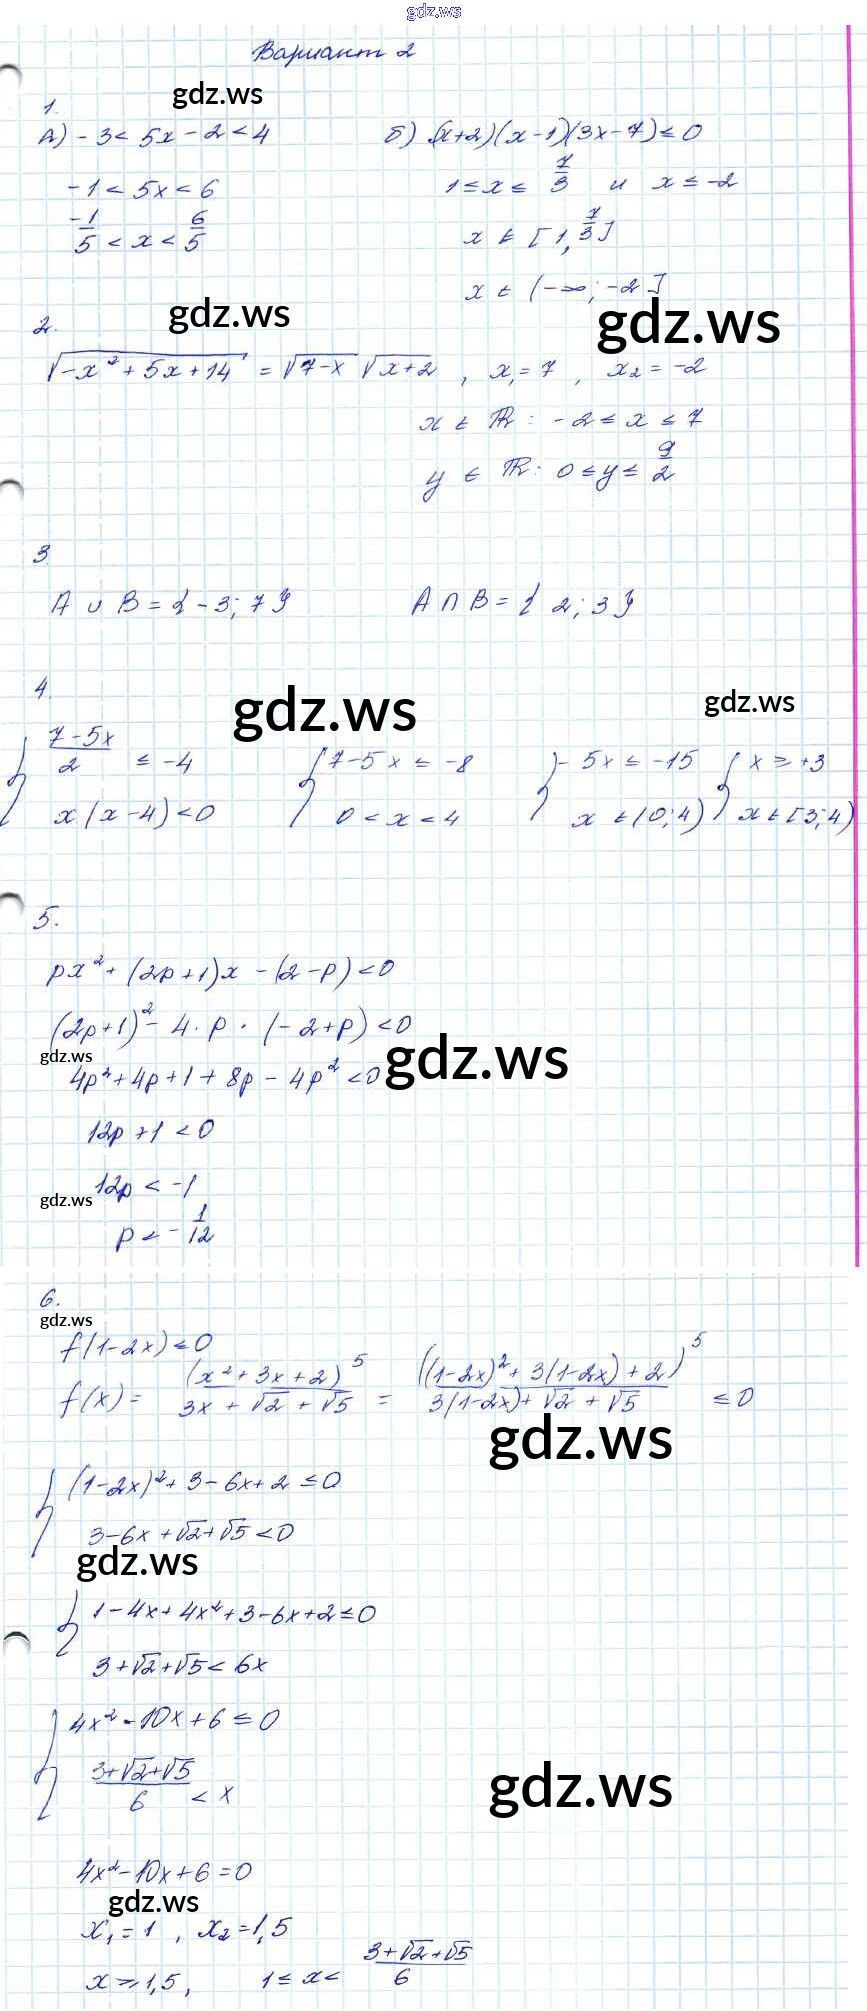 gdz.ws
Вариант 2
gdz.ws
1.
А) -3 < 5x - 2 < 4
б) (x+2)(x-1)(3x-7) ≤ 0
-1 < 5x < 6
1 ≤ x ≤ 7/3 и x ≤ -2
-1/5 < x < 6/5
x ∈ [1, 7/3]
x ∈ (-∞; -2]
gdz.ws
gdz.ws
2.
√(-x² + 5x + 14) = √(7-x) √(x+2) , x₁ = 7 , x₂ = -2
x ∈ R : -2 ≤ x ≤ 7
y ∈ R : 0 ≤ y ≤ 9/2
3
A ∪ B = {-3; 7}
A ∩ B = { 2; 3}
4.
gdz.ws
gdz.ws
{ (7-5x)/2 ≤ -4 { 7-5x ≤ -8 { -5x ≤ -15 { x ≥ +3
x(x-4) < 0 0 < x < 4 x ∈ (0; 4) x ∈ [3; 4)
5.
px² + (2p+1)x - (2-p) < 0
(2p+1)² - 4 · p · (-2+p) < 0
gdz.ws
gdz.ws
4p² + 4p + 1 + 8p - 4p² < 0
12p + 1 < 0
12p < -1
gdz.ws
p < -1/12
6.
gdz.ws
f(1-2x) ≤ 0
f(x) = (x² + 3x + 2)⁵/(3x + √2 + √5) = ((1-2x)² + 3(1-2x) + 2)⁵/(3(1-2x) + √2 + √5) ≤ 0
gdz.ws
{ (1-2x)² + 3 - 6x + 2 ≤ 0
3 - 6x + √2 + √5 < 0
gdz.ws
{ 1 - 4x + 4x² + 3 - 6x + 2 ≤ 0
3 + √2 + √5 < 6x
{ 4x² - 10x + 6 ≤ 0
(3+√2+√5)/6 < x
gdz.ws
4x² - 10x + 6 = 0
gdz.ws
x₁ = 1 , x₂ = 1,5
x ≥ 1,5 , 1 ≤ x < (3+√2+√5)/6